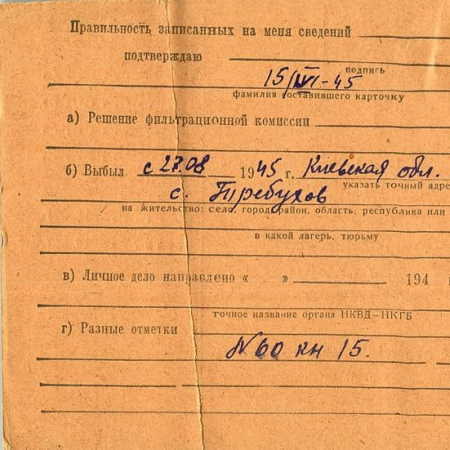 Правильность записанных на меня сведений
подтверждаю
подпись
15/VI-45
фамилия составившего карточку
а) Решение фильтрационной комиссии
б) Выбыл с 27.08 1945 г. Киевская обл.
указать точный адре
с. Требухов
на жительство: село, город, район, область, республика или
в какой лагерь, тюрьму
в) Личное дело направлено « » 194
точное название органа НКВД—НКГБ
г) Разные отметки
№60 кн 15.